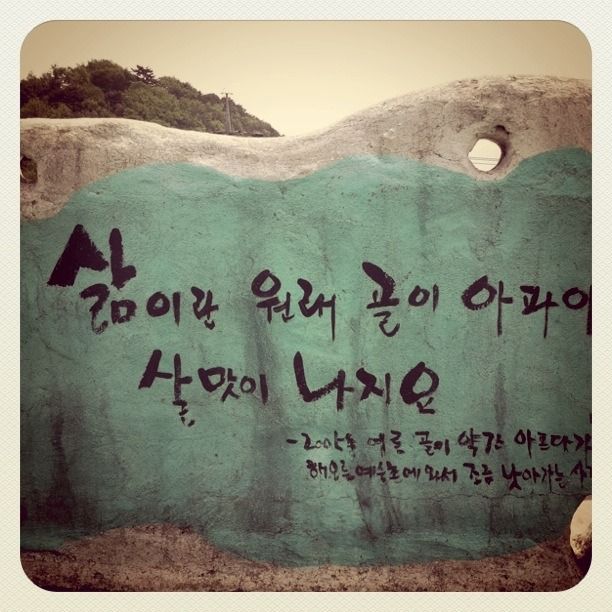 삶이란 원래 골이 아파야
살맛이 나지요
여름 골이 약간 아프다가
해오름예술촌에 와서 조금 낫아가는